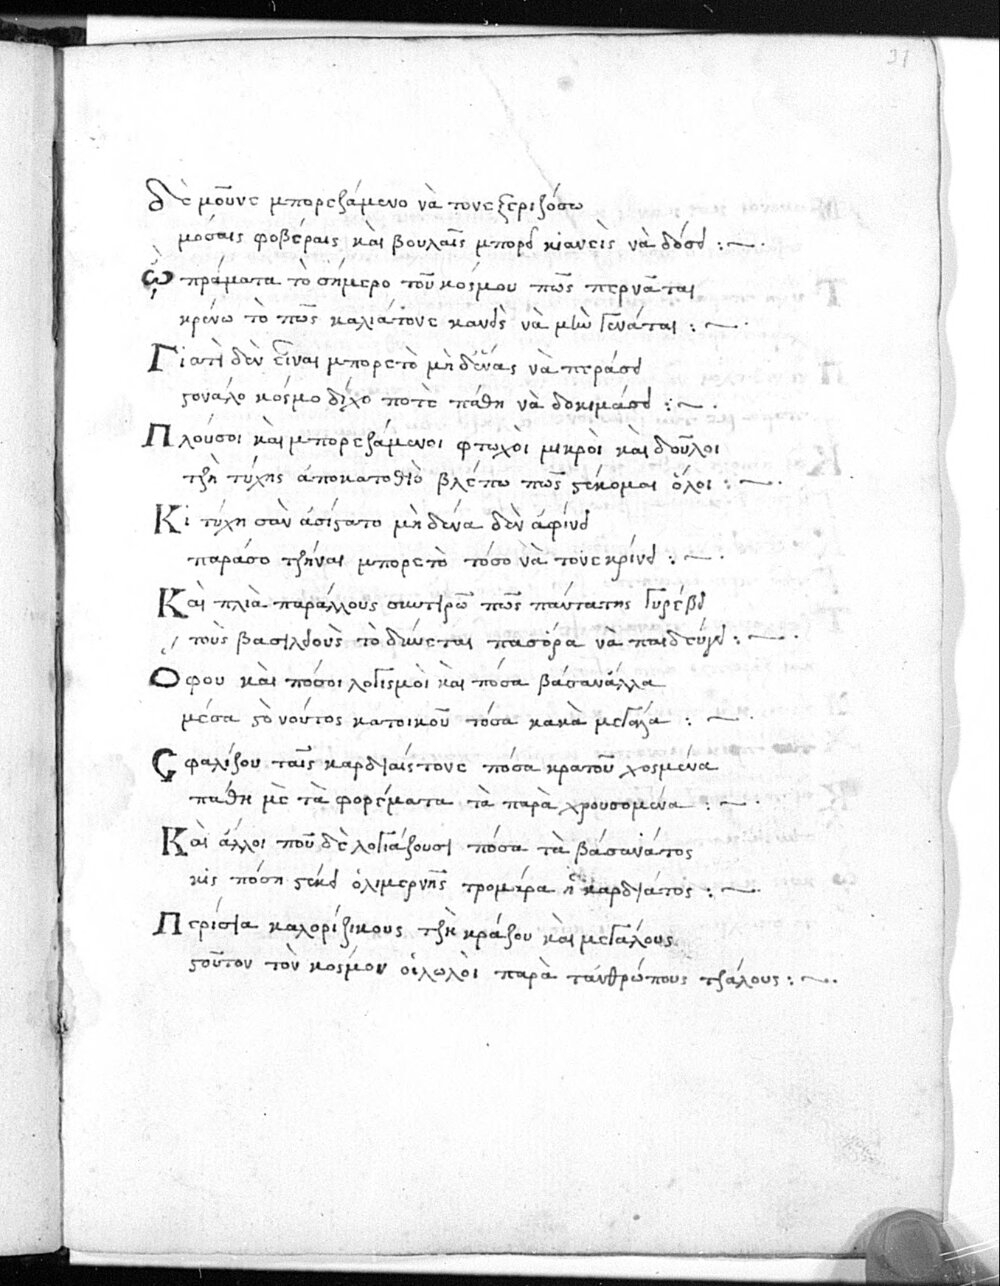 31
δὲ μοῦνε μπορεζάμενο νὰ τονε ξεριζόσω
μόσαις φοβέραις κὰι βουλαῖς μπορεῖ κιανεὶς νὰ δόσει :~.
ὦ πράματα τὸ σήμερο τοῦ κόσμου πῶς περνᾶται
κρένω τὸ πῶς καλιάτονε κανεὶς νὰ μὴν γεννάται :~.
Γιατὶ δὲν εἶναι μπορετὸ μηδένας νὰ περάσει
στονάλο κόσμο δίχο ποτὲ πάθη νὰ δοκιμάσει :~.
Πλούσοι κὰι μπορεζάμενοι φτωχοι μικρὸι κὰι δοῦλοι
τζὴ τύχης ἀποκατοθιὸ βλέπω πῶς στέκομαι ὅλοι :~.
Κὶ τύχη σὰν ἀσίστατο μηδένα δὲν ἀφίνει
παράσο τζήναι μπορετὸ τόσο νὰ τονε κρίνει :~.
Κὰι πλιὰ παράλλους συντιρῶ πῶς πάντα της γυρέβει
τοὺς βασιλειοὺς τὸ δύνεται πασόρα νὰ παιδεύγει :~.
Οφου κὰι πόσοι λογισμὸι κὰι πόσα βάσανάλλα
μέσα στὸ νούτος κατοικοῦ τόσα κακὰ μεγάλα :~.
Σφαλίζου ταῖς καρδιάις τονε πόσα κρατοῦ χοσμένα
πάθη μὲ τὰ φορέματα τὰ παρὰ χρουσομένα :~.
Κὰι άλλοι ποῦ δὲ λογιάζουσι πόσα τὰ βάσανάτος
κὶς πόση στέκει ὁλιμερνῆς τρομάρα η καρδιάτος :~.
Περίσια καλορίζικους τζὴ κράζου κὰι μεγάλους
στοῦτον τὸν κόσμον οἱ λωλὸι παρὰ τάνθρώπους τζάλους :~.